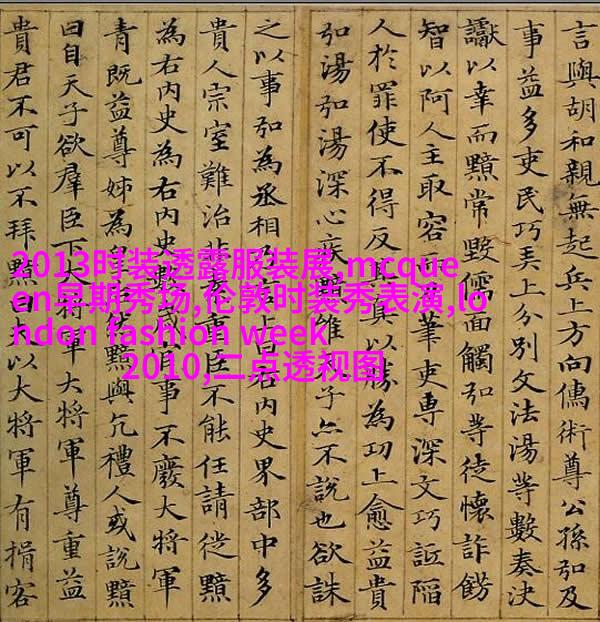 言與胡和親無起兵上方向儒術尊公孫弘及
事益多吏民巧弄上分別文法湯等數奏決
讞以幸而黯常毀儒面觸弘等徒懷詐飾
智以阿人主取容筆吏專深文巧詆陷
人於罪使不得反其真以勝為功上愈益貴
弘湯弘湯深心疾黯雖天子亦不說也欲誅
之以事弘為丞相乃言上曰右內史界部中多
貴人宗室難治非素重臣不能任請徙黯
為右內史為右內史數歲官事不廢大將軍
青既益尊姊為皇后然黯與亢禮人或說黯
曰自天子欲羣臣下大將軍大將軍尊重益
貴君不可以不拜黯曰以大將軍有揖客
2013时装透露服装展,mcque
en早期秀场,伦敦时装秀表演,lo
ndon fashion week
2010,二点透视图